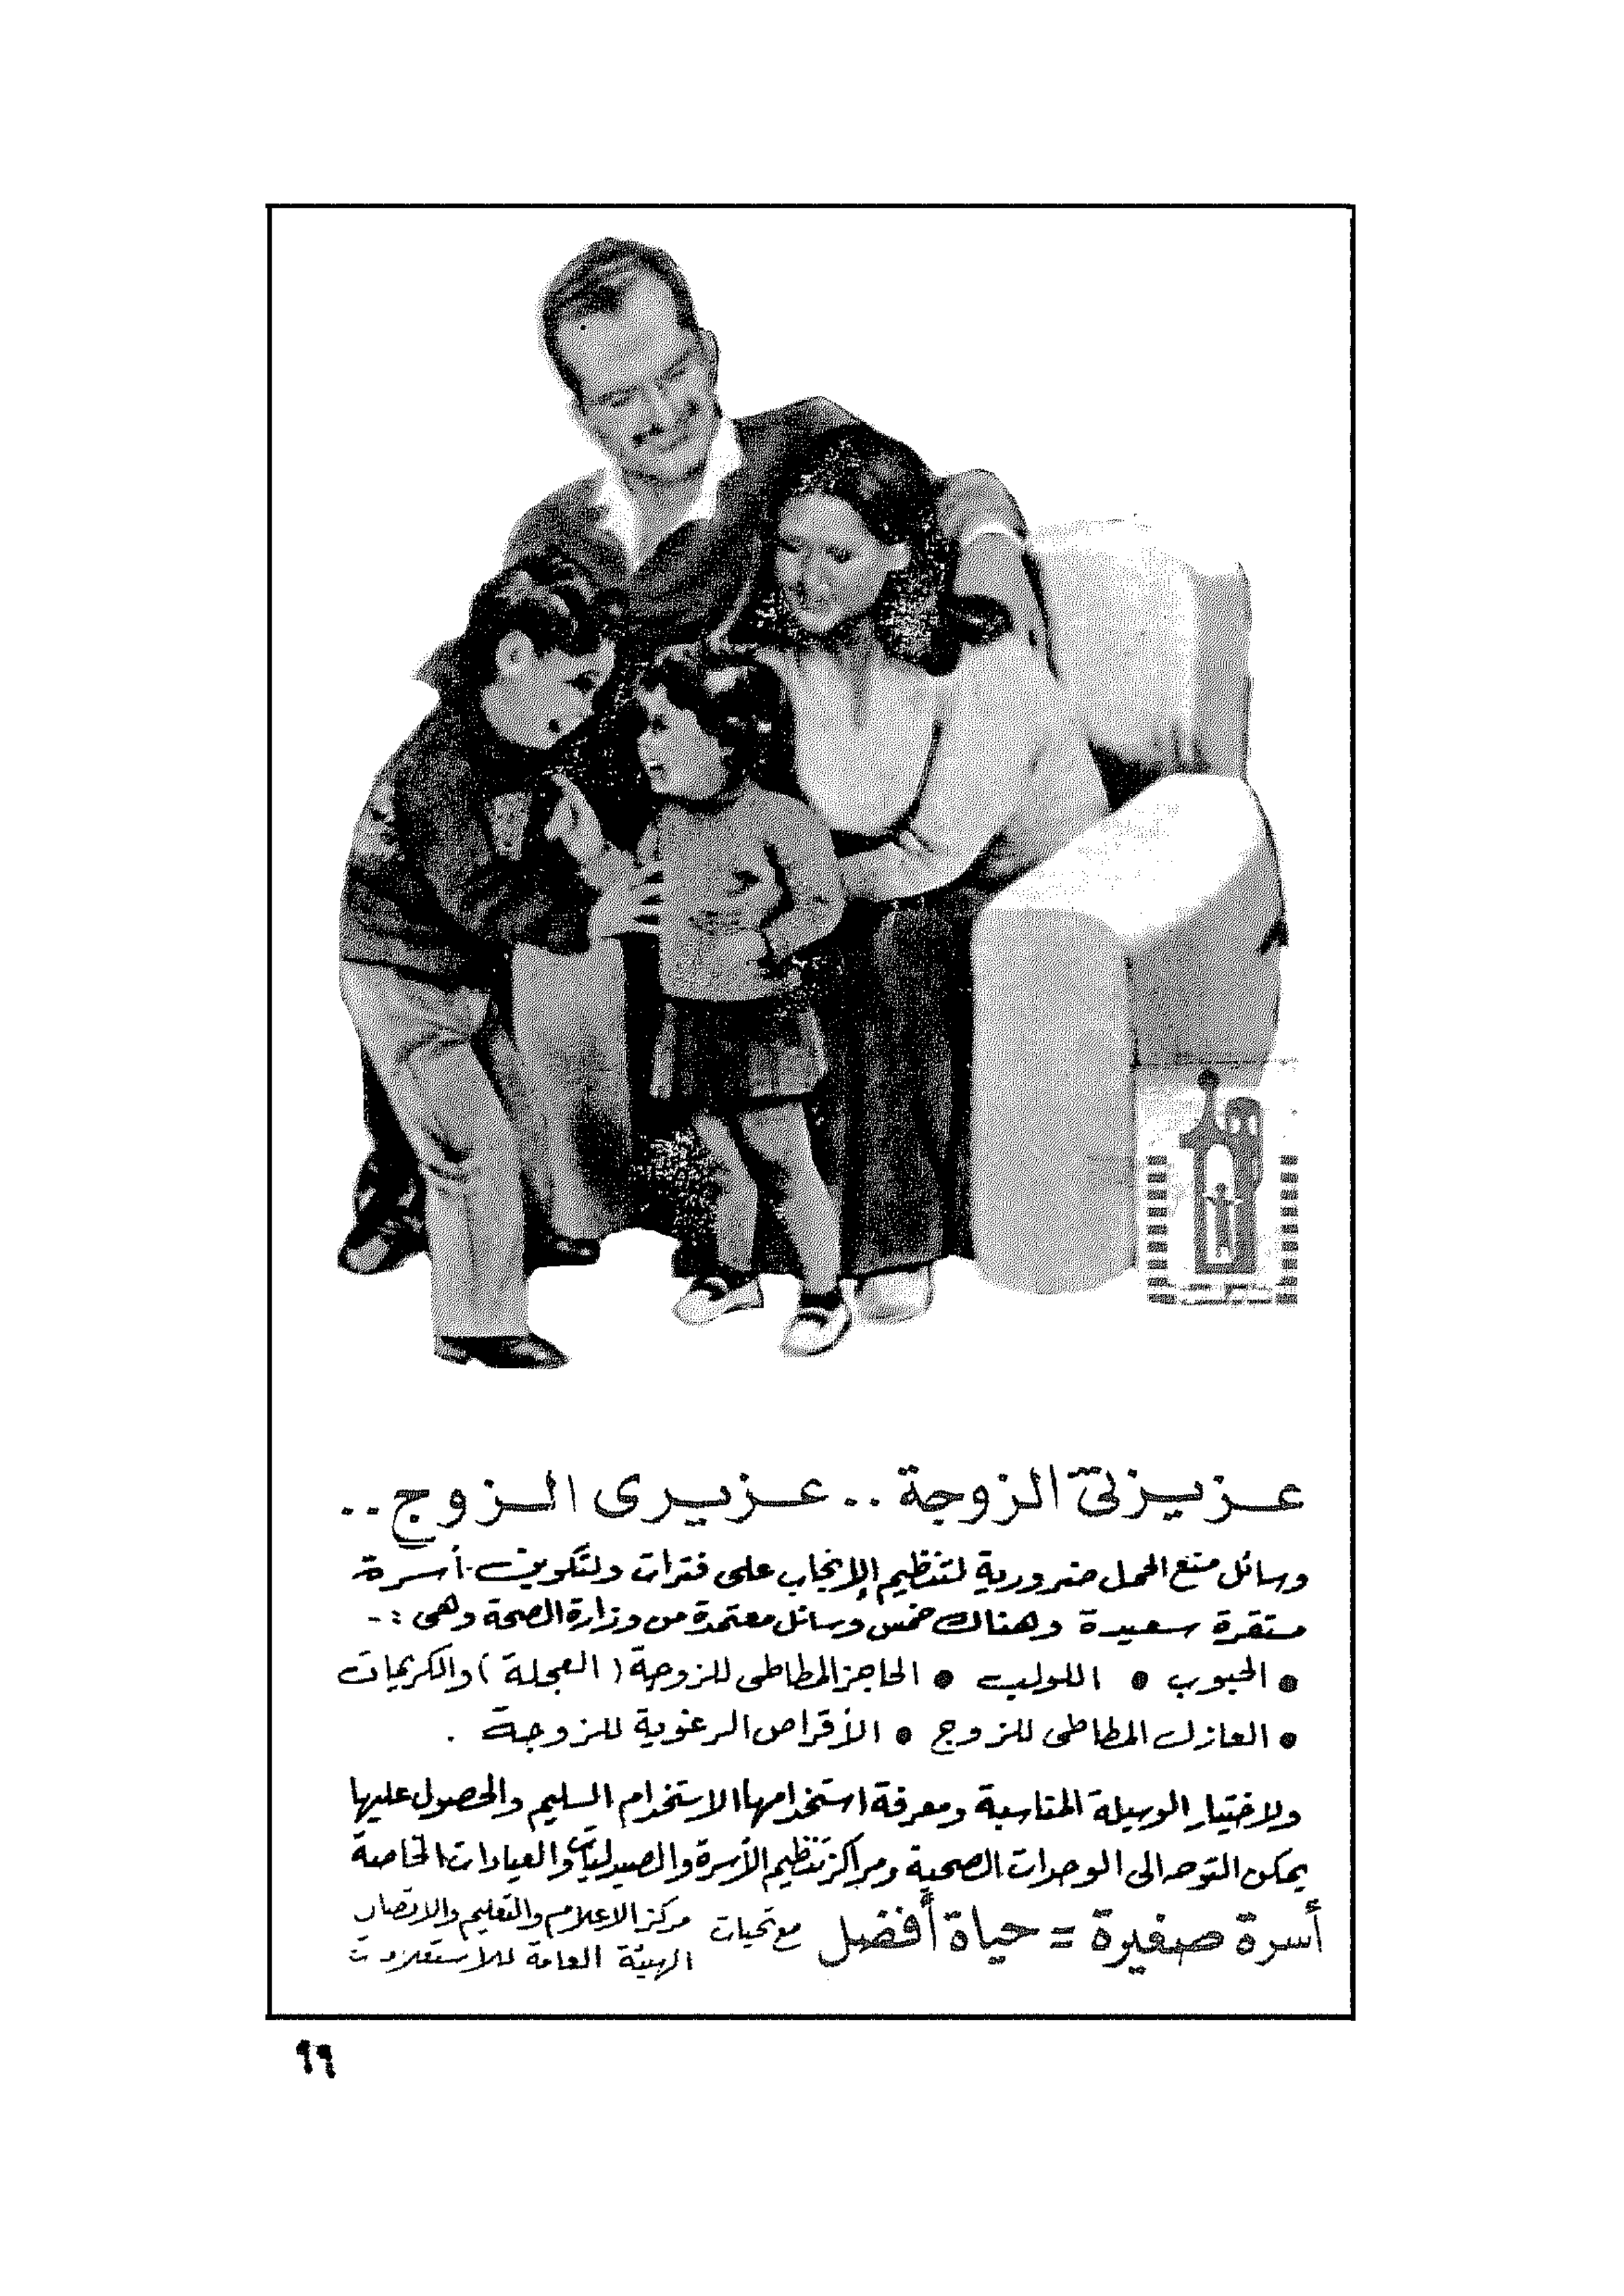 عزيزتى الزوجة .. عزيزى الزوج ..
وسائل منع الحمل ضرورية لتنظيم الإنجاب على فترات ولتكوين أسرة
مستقرة سعيدة وهناك خمس وسائل معتمدة من وزارة الصحة وهى :-
• الحبوب • اللولب • الحاجز المطاطى للزوجة ( العجلة ) والكريمات
• العازل المطاطى للزوج • الأقراص الرغوية للزوجة .
ولاختيار الوسيلة المناسبة ومعرفة استخدامها الاستخدام السليم والحصول عليها
يمكن التوجه الى الوحدات الصحية ومراكز تنظيم الأسرة والصيدليات والعيادات الخاصة
أسرة صغيرة = حياة أفضل مع تحيات مركز الاعلام والتعليم والاتصال
الهيئة العامة للاستعلامات
٩٦